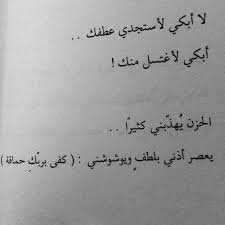 لا أبكي لأستجدي عطفك ..
أبكي لأغتسل منك !
الحزن يُهذّبني كثيرًا ..
يعصر أذني بلطفٍ ويوشوشني : ( كفى بربّكِ حماقة )